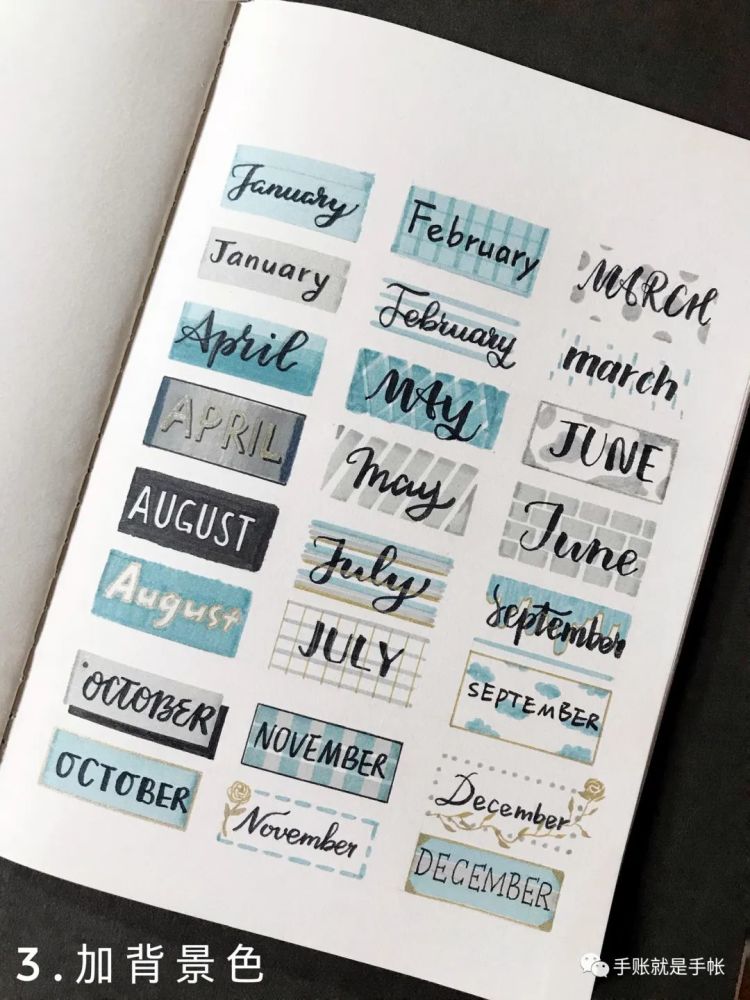 January
February
MARCH
January
February
march
April
MAY
JUNE
APRIL
May
June
AUGUST
July
September
August
JULY
SEPTEMBER
OCTOBER
NOVEMBER
December
OCTOBER
November
DECEMBER
3.加背景色
手账就是手帐